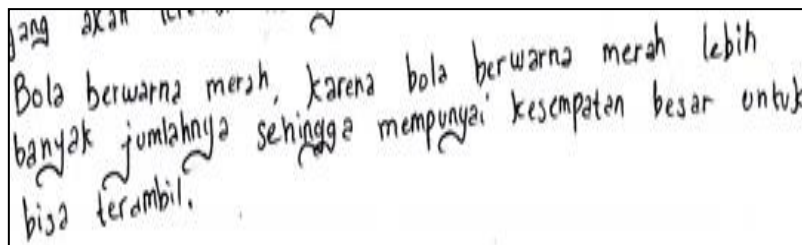 yang akan
Bola berwarna merah, karena bola berwarna merah lebih
banyak jumlahnya sehingga mempunyai kesempatan besar untuk
bisa terambil.